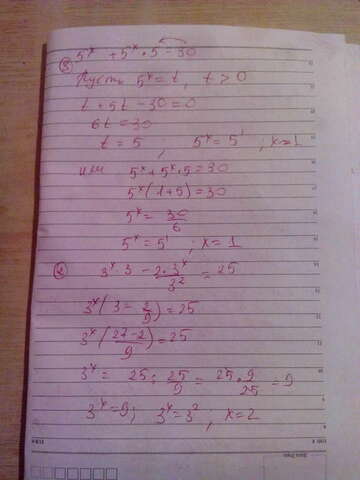 ③ 5^x + 5^x · 5 - 30
Пусть 5^x = t, t > 0
t + 5t - 30 = 0
6t = 30
t = 5, 5^x = 5^1, x = 1
или 5^x + 5^x · 5 = 30
5^x (1 + 5) = 30
5^x = 30/6
5^x = 5^1; x = 1
3^x · 3 - 2 · 3^x/3^2 = 25
3^x (3 - 2/9) = 25
3^x ((27 - 2)/9) = 25
3^x = 25 : 25/9 = 25 · 9/25 = 9
3^x = 9; 3^x = 3^2; x = 2